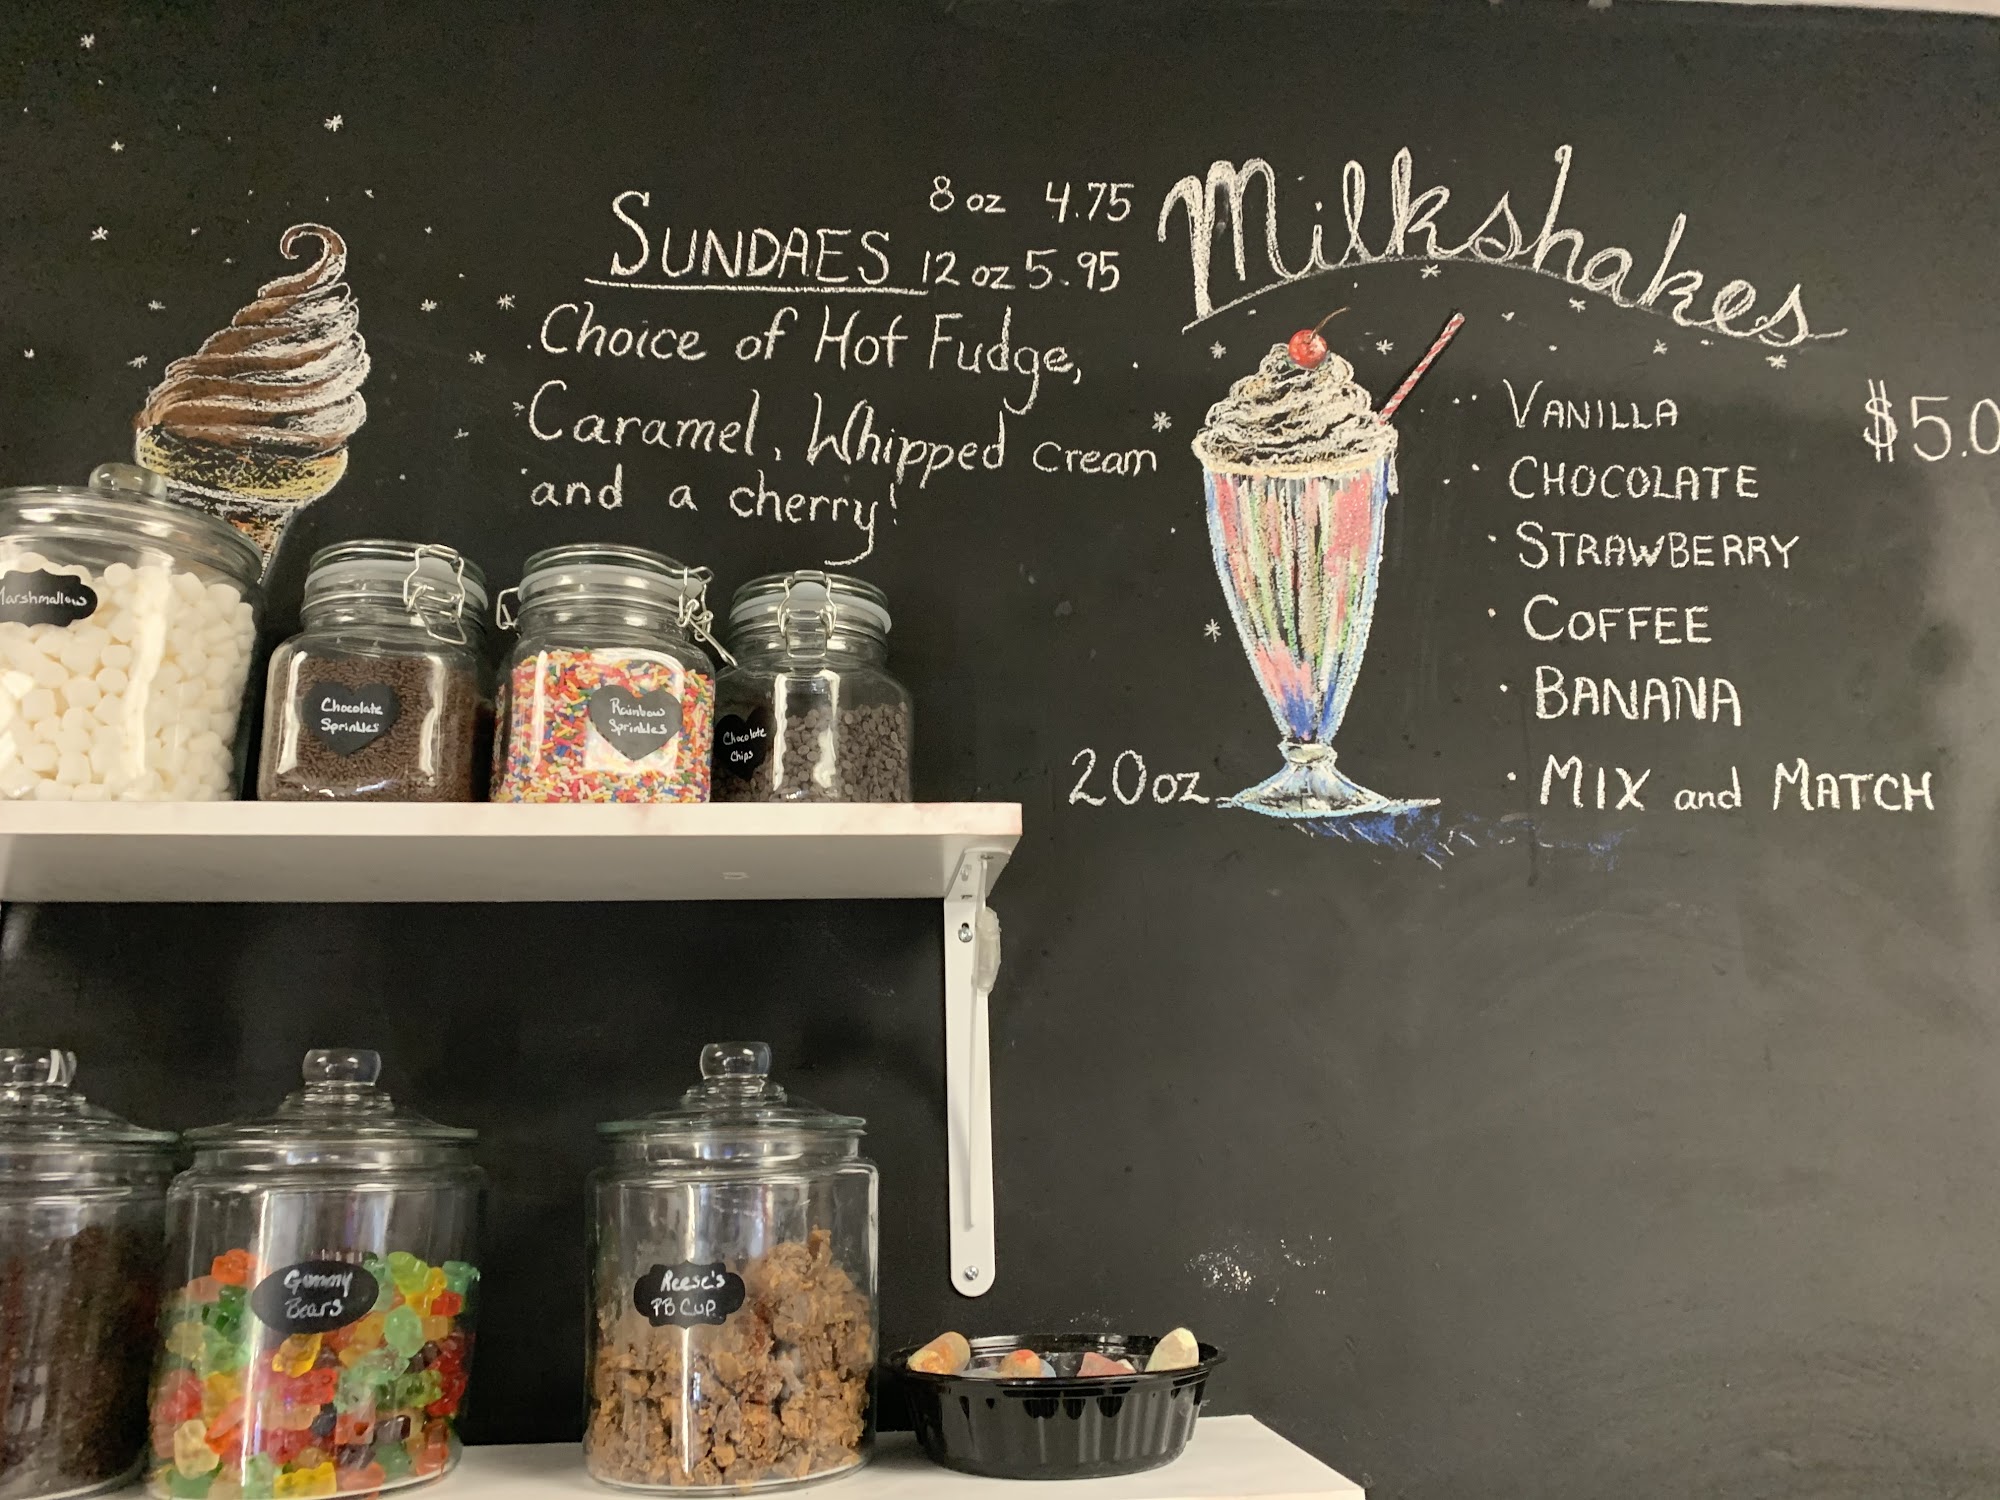 SUNDAES
8 oz 4.75
12 oz 5.95
Choice of Hot Fudge,
Caramel, Whipped cream
and a cherry!
Milkshakes
· VANILLA
· CHOCOLATE
· STRAWBERRY
· COFFEE
· BANANA
· MIX and MATCH
$5.0
20oz
Marshmallow
Chocolate
Sprinkles
Rainbow
Sprinkles
Chocolate
Chips
Gummy
Bears
Reese's
PB Cup